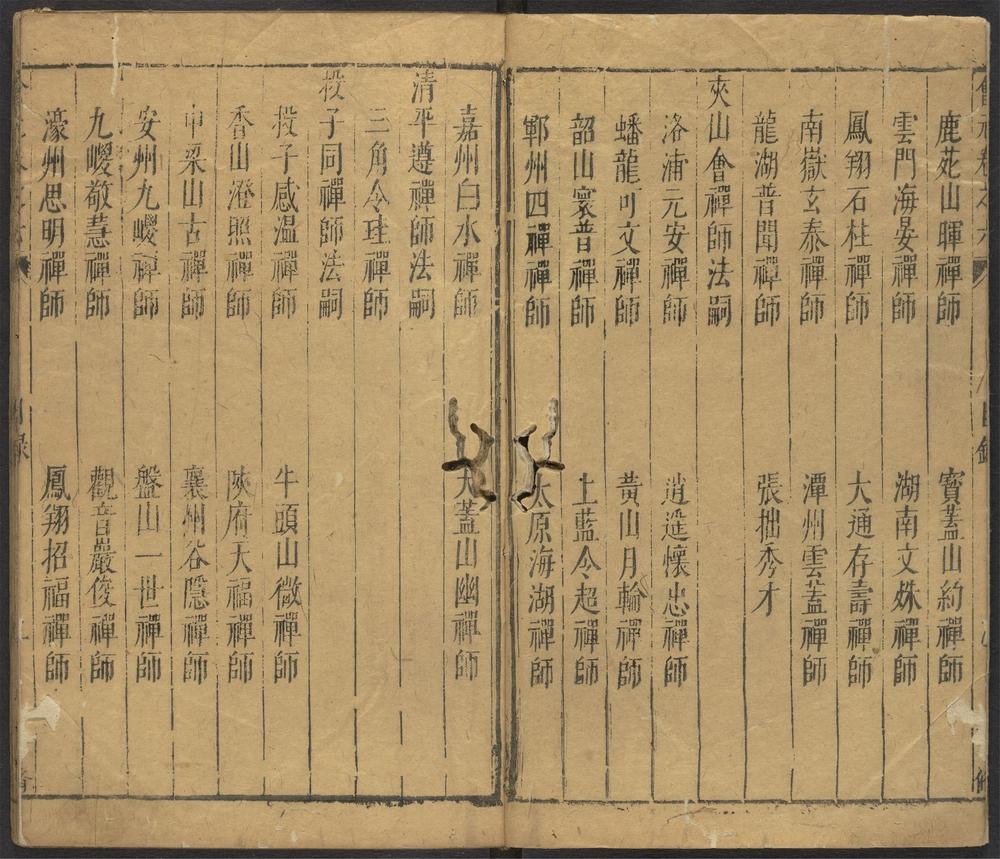 鹿苑山暉禪師 寶蓋山約禪師
雲門海晏禪師 湖南文殊禪師
鳳翔石柱禪師 大通存壽禪師
南嶽玄泰禪師 潭州雲蓋禪師
龍湖普聞禪師 張拙秀才
夾山會禪師法嗣
洛浦元安禪師 逍遥懷忠禪師
蟠龍可文禪師 黃山月輪禪師
韶山寰普禪師 上藍令超禪師
鄆州四禪禪師 太原海湖禪師
嘉州白水禪師 天蓋山幽禪師
清平遵禪師法嗣
三角令珪禪師
投子同禪師法嗣
投子感温禪師 牛頭山微禪師
香山澄照禪師 陝府天福禪師
中梁山古禪師 襄州谷隱禪師
安州九嵕禪師 盤山二世禪師
九嵕敬慧禪師 觀音巖俊禪師
濠州思明禪師 鳳翔招福禪師